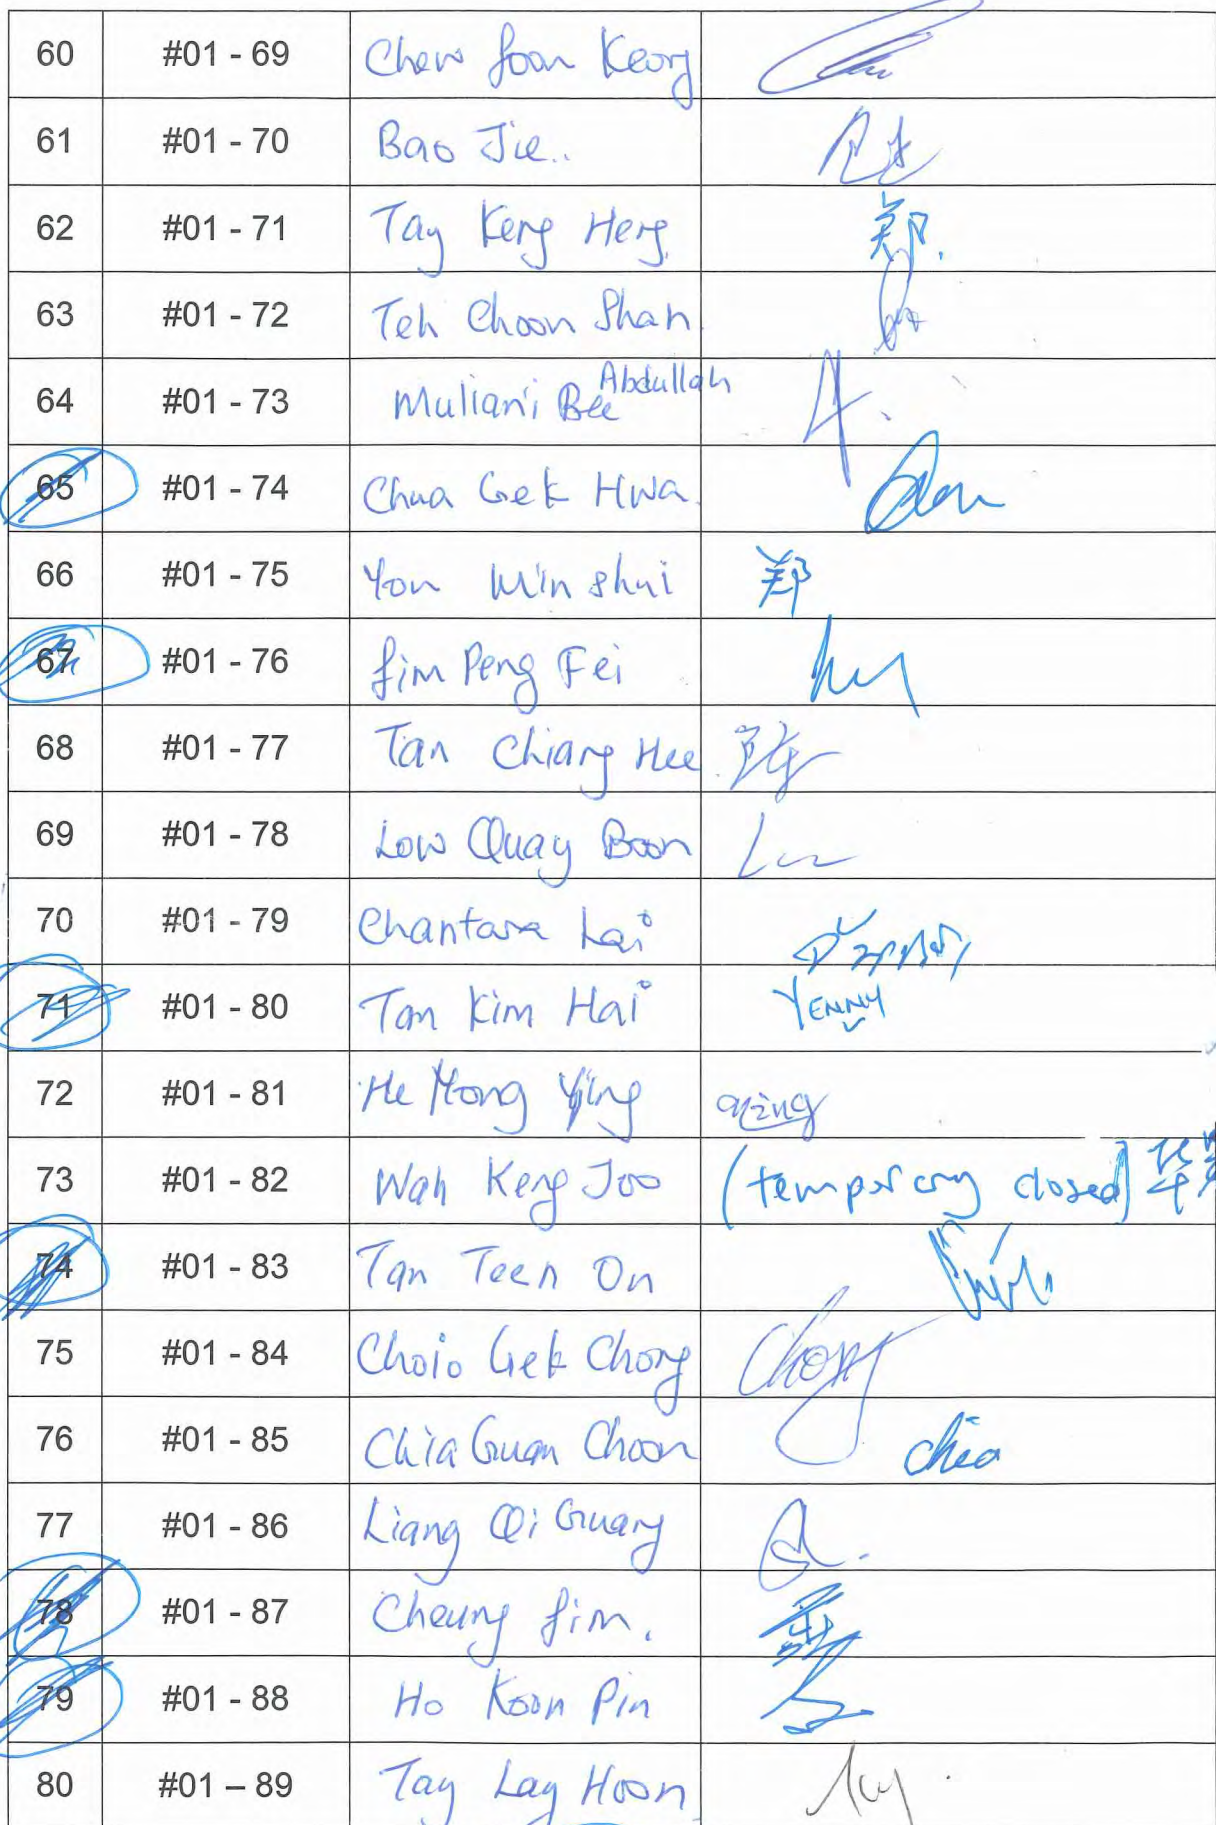 60 #01 - 69 Chew Soon Keong
61 #01 - 70 Bao Jie..
62 #01 - 71 Tay Keng Heng. 郑.
63 #01 - 72 Teh Choon Shan.
64 #01 - 73 Muliani Bee Abdullah
65 #01 - 74 Chua Gek Hwa.
66 #01 - 75 You Min Shui 郑
67 #01 - 76 Lim Peng Fei
68 #01 - 77 Tan Chiang Hee
69 #01 - 78 Low Quay Boon
70 #01 - 79 Chantara Lai
71 #01 - 80 Tan Kim Hai YENNY
72 #01 - 81 He Hong Ying
73 #01 - 82 Wah Keng Joo (temporary closed)
74 #01 - 83 Tan Teen On
75 #01 - 84 Choio Gek Chong Chong
76 #01 - 85 Chia Guan Choon chia
77 #01 - 86 Liang Qi Guang
78 #01 - 87 Cheung Lim.
79 #01 - 88 Ho Koon Pin
80 #01 – 89 Tay Lay Hoon.